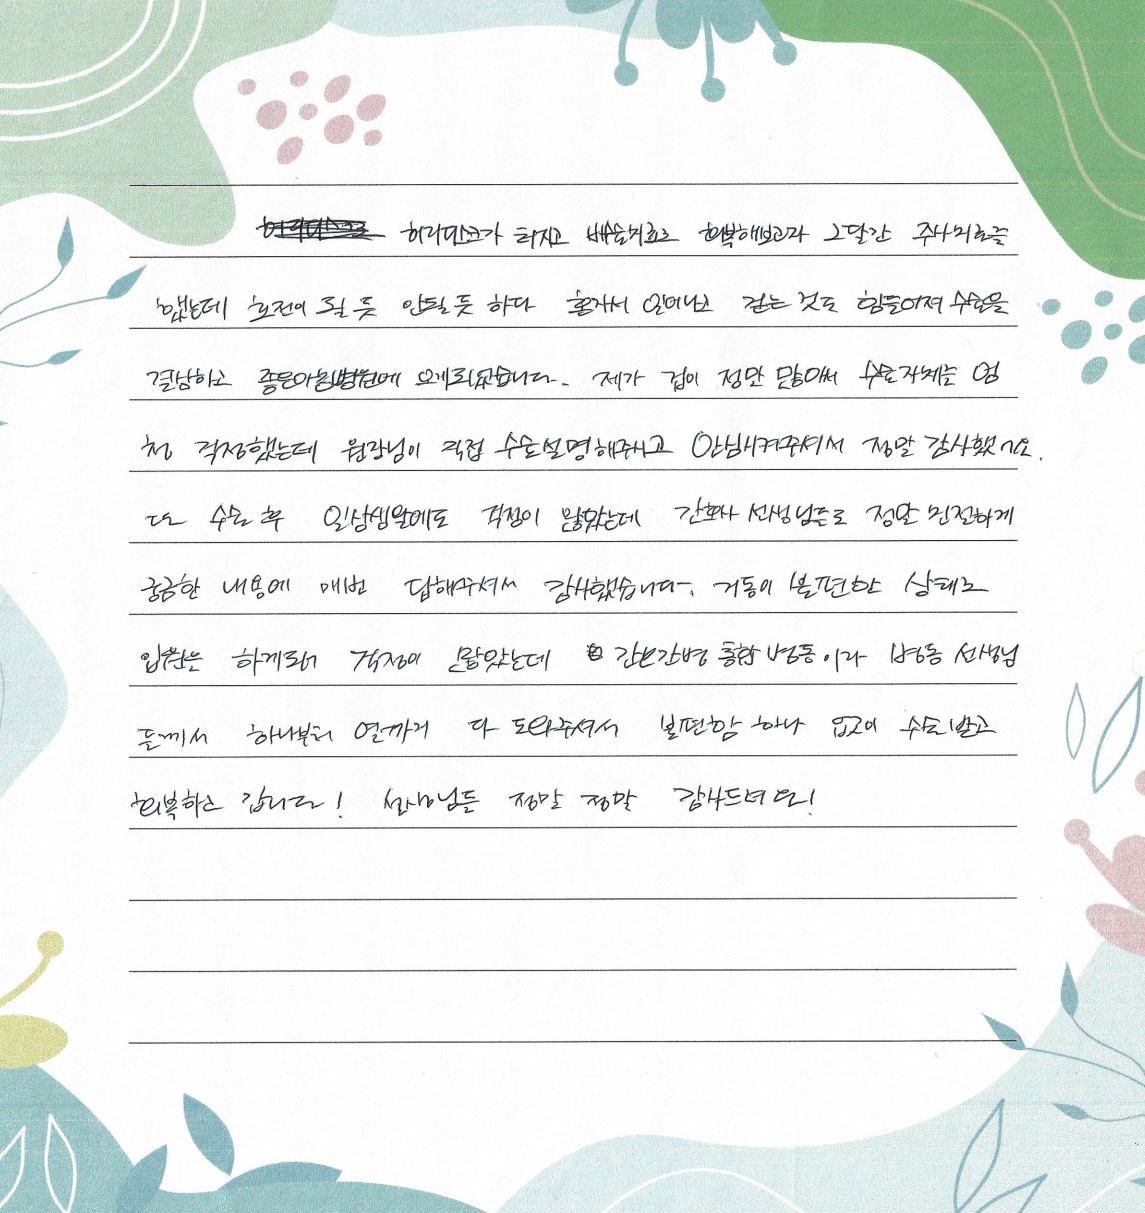 허리디스크가 터지고 비수술치료로 회복해보고자 그 달간 주사치료를
했는데 호전이 될 듯 안될 듯 하다 혼자서 일어나고 걷는 것도 힘들어져 수술을
결심하고 좋은아침병원에 오게되었습니다. 제가 겁이 정말 많아서 수술자체는 엄
청 걱정했는데 원장님이 직접 수술설명해주시고 안심시켜주셔서 정말 감사했어요.
또 수술 후 일상생활에도 걱정이 많았는데 간호사 선생님들도 정말 친절하게
궁금한 내용에 매번 답해주셔서 감사했습니다. 거동이 불편한 상태로
입원은 하게되어 걱정이 많았는데 간호간병 통합 병동이라 병동 선생님
들께서 하나부터 열까지 다 도와주셔서 불편함 하나 없이 수술받고
회복하고 갑니다! 선생님들 정말 정말 감사드려요!